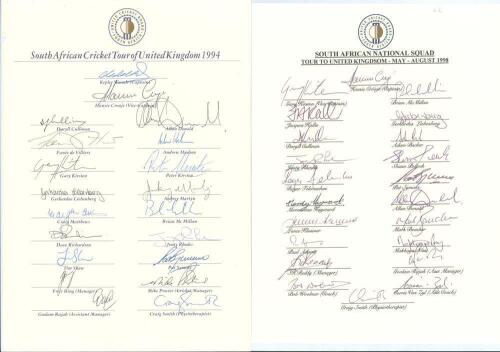 South African Cricket Tour of United Kingdom 1994
Kepler Wessels (Captain)
Hansie Cronje (Vice-Captain)
Daryll Cullinan
Allan Donald
Fanie de Villiers
Andrew Hudson
Gary Kirsten
Peter Kirsten
Gerhardus Liebenberg
Aubrey Martyn
Craig Matthews
Brian McMillan
Dave Richardson
Jonty Rhodes
Tim Shaw
Pat Symcox
Fritz Bing (Manager)
Mike Procter (Cricket Manager)
Goolam Rajah (Assistant Manager)
Craig Smith (Physiotherapist)
SOUTH AFRICAN NATIONAL SQUAD
TOUR TO UNITED KINGSDOM - MAY - AUGUST 1998
Hansie Cronje (Captain)
Gary Kirsten (Vice-Captain)
Brian McMillan
Jacques Kallis
Gerhardus Liebenberg
Daryll Cullinan
Adam Bacher
Jonty Rhodes
Shaun Pollock
Roger Telemachus
Pat Symcox
Mornantau Hayward
Allan Donald
Lance Klusener
Mark Boucher
Paul Adams
Goolam Rajah (Asst Manager)
Bob Woolmer (Coach)
Corrie Van Zyl (Asst Coach)
Craig Smith (Physiotherapist)